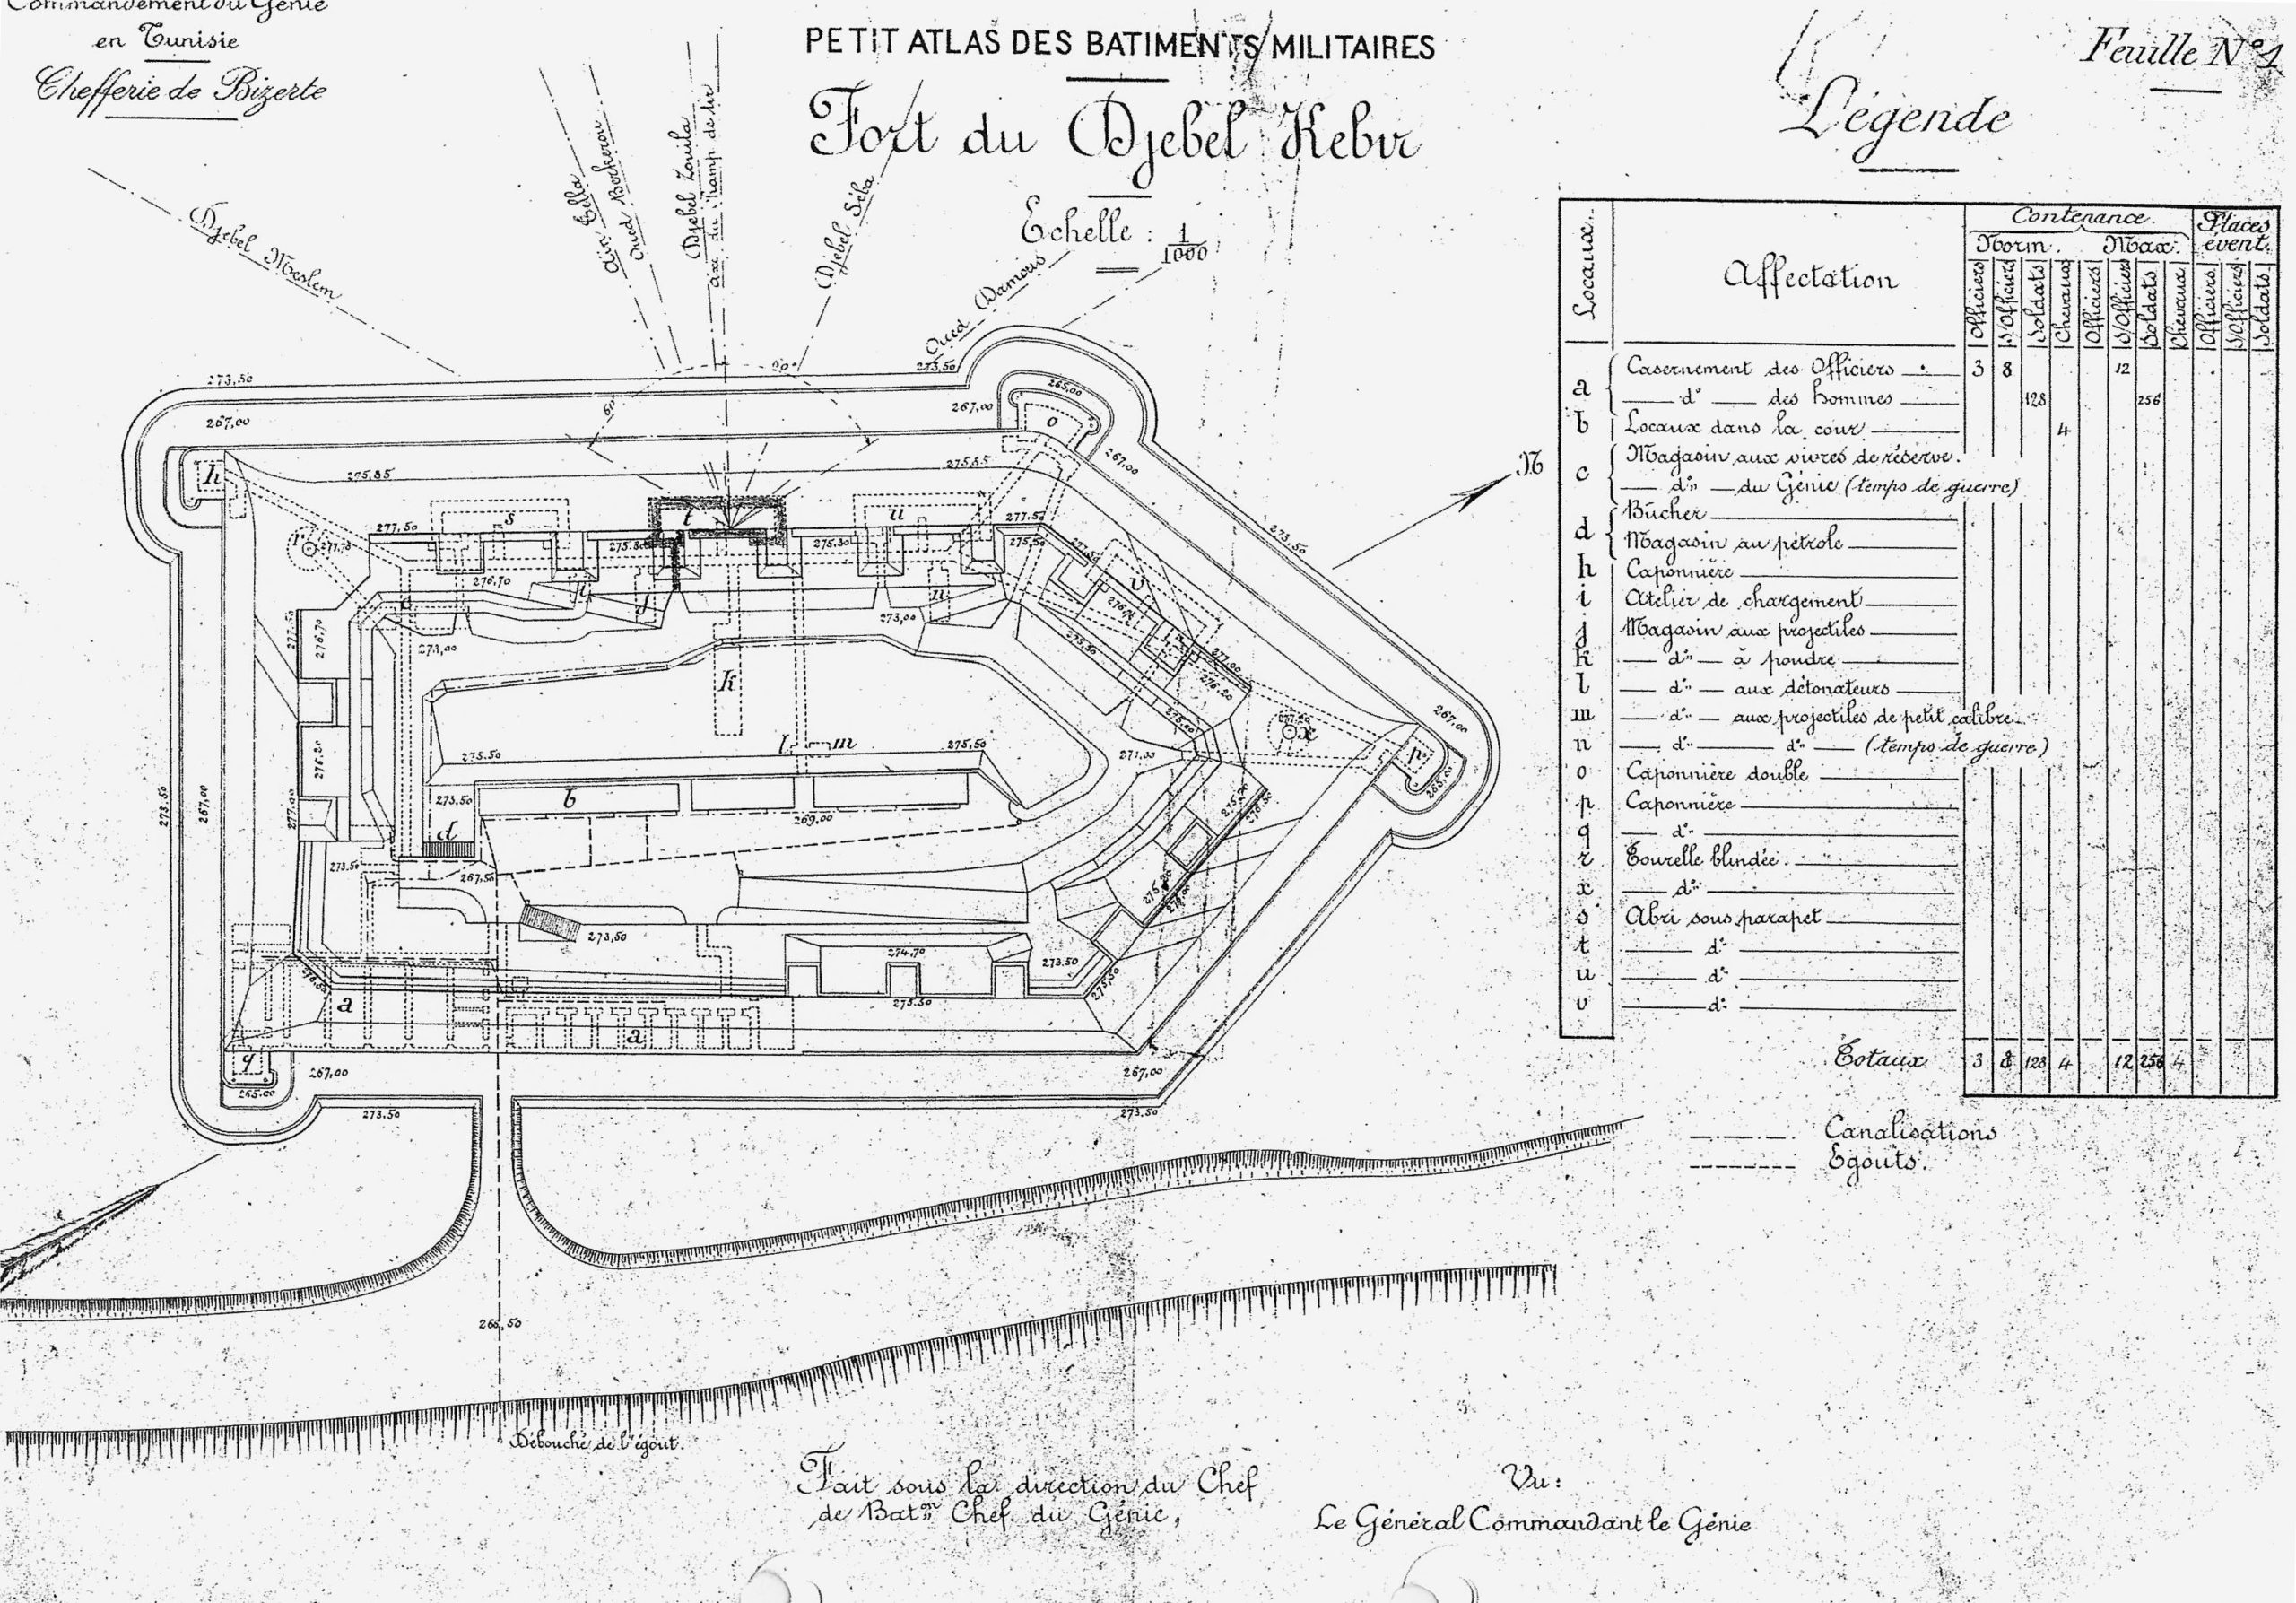 Commandement du Génie
en Tunisie
Chefferie de Bizerte
PETIT ATLAS DES BATIMENTS MILITAIRES
Fort du Djebel Kebir
Echelle : 1/1000
Feuille N° 1
Légende
Locaux.
Affectation
Contenance.
Places évent.
Norm. Max.
Officiers
S/Officiers
Soldats
Chevaux
Officiers
S/Officiers
Soldats
Chevaux
Officiers
S/Officiers
Soldats.
a Casernement des Officiers 3 8 12
d° des hommes 128 256
b Locaux dans la cour 4
c Magasin aux vivres de réserve.
d° du Génie (temps de guerre)
d Bûcher
Magasin au pétrole
h Caponnière
i Atelier de chargement
j Magasin aux projectiles
k d° à poudre
l d° aux détonateurs
m d° aux projectiles de petit calibre
n d° d° (temps de guerre)
o Caponnière double
p Caponnière
q d°
r Tourelle blindée.
x d°
s Abri sous parapet
t d°
u d°
v d°
Totaux 3 8 128 4 12 256 4
Canalisations
Egouts.
Djebel Meslem
Aïn Tella
Oued Berkerou
Djebel Zouila
axe du champ de tir
Djebel Sela
Oued Damous
N
273,50
267,00
275,85
277,50
276,70
273,00
275,50
273,50
269,00
267,50
273,50
274,70
273,50
275.50
267,00
273,50
265.00
271,00
h
r
s
t
u
o
v
c
i
j
n
k
l
m
x
p
b
d
a
a
q
Débouché de l'égout.
Fait sous la direction du Chef
de Bat.on Chef du Génie,
Vu :
Le Général Commandant le Génie